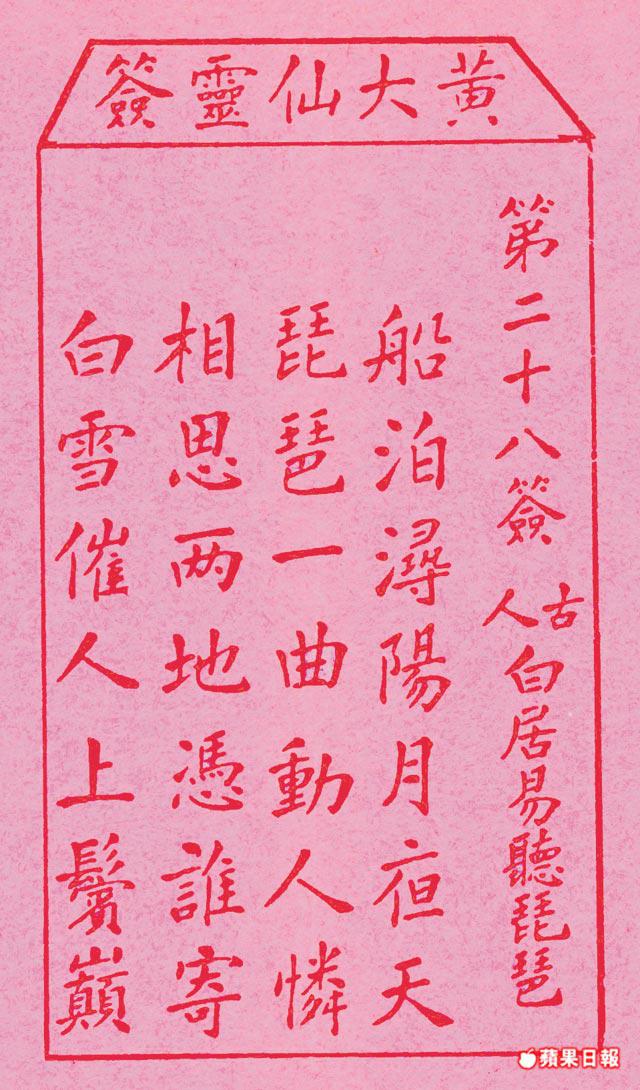 黄大仙靈簽
第二十八簽 古人 白居易聽琵琶
船泊潯陽月亱天
琵琶一曲動人憐
相思两地憑誰寄
白雪催人上鬢巔
蘋果日報